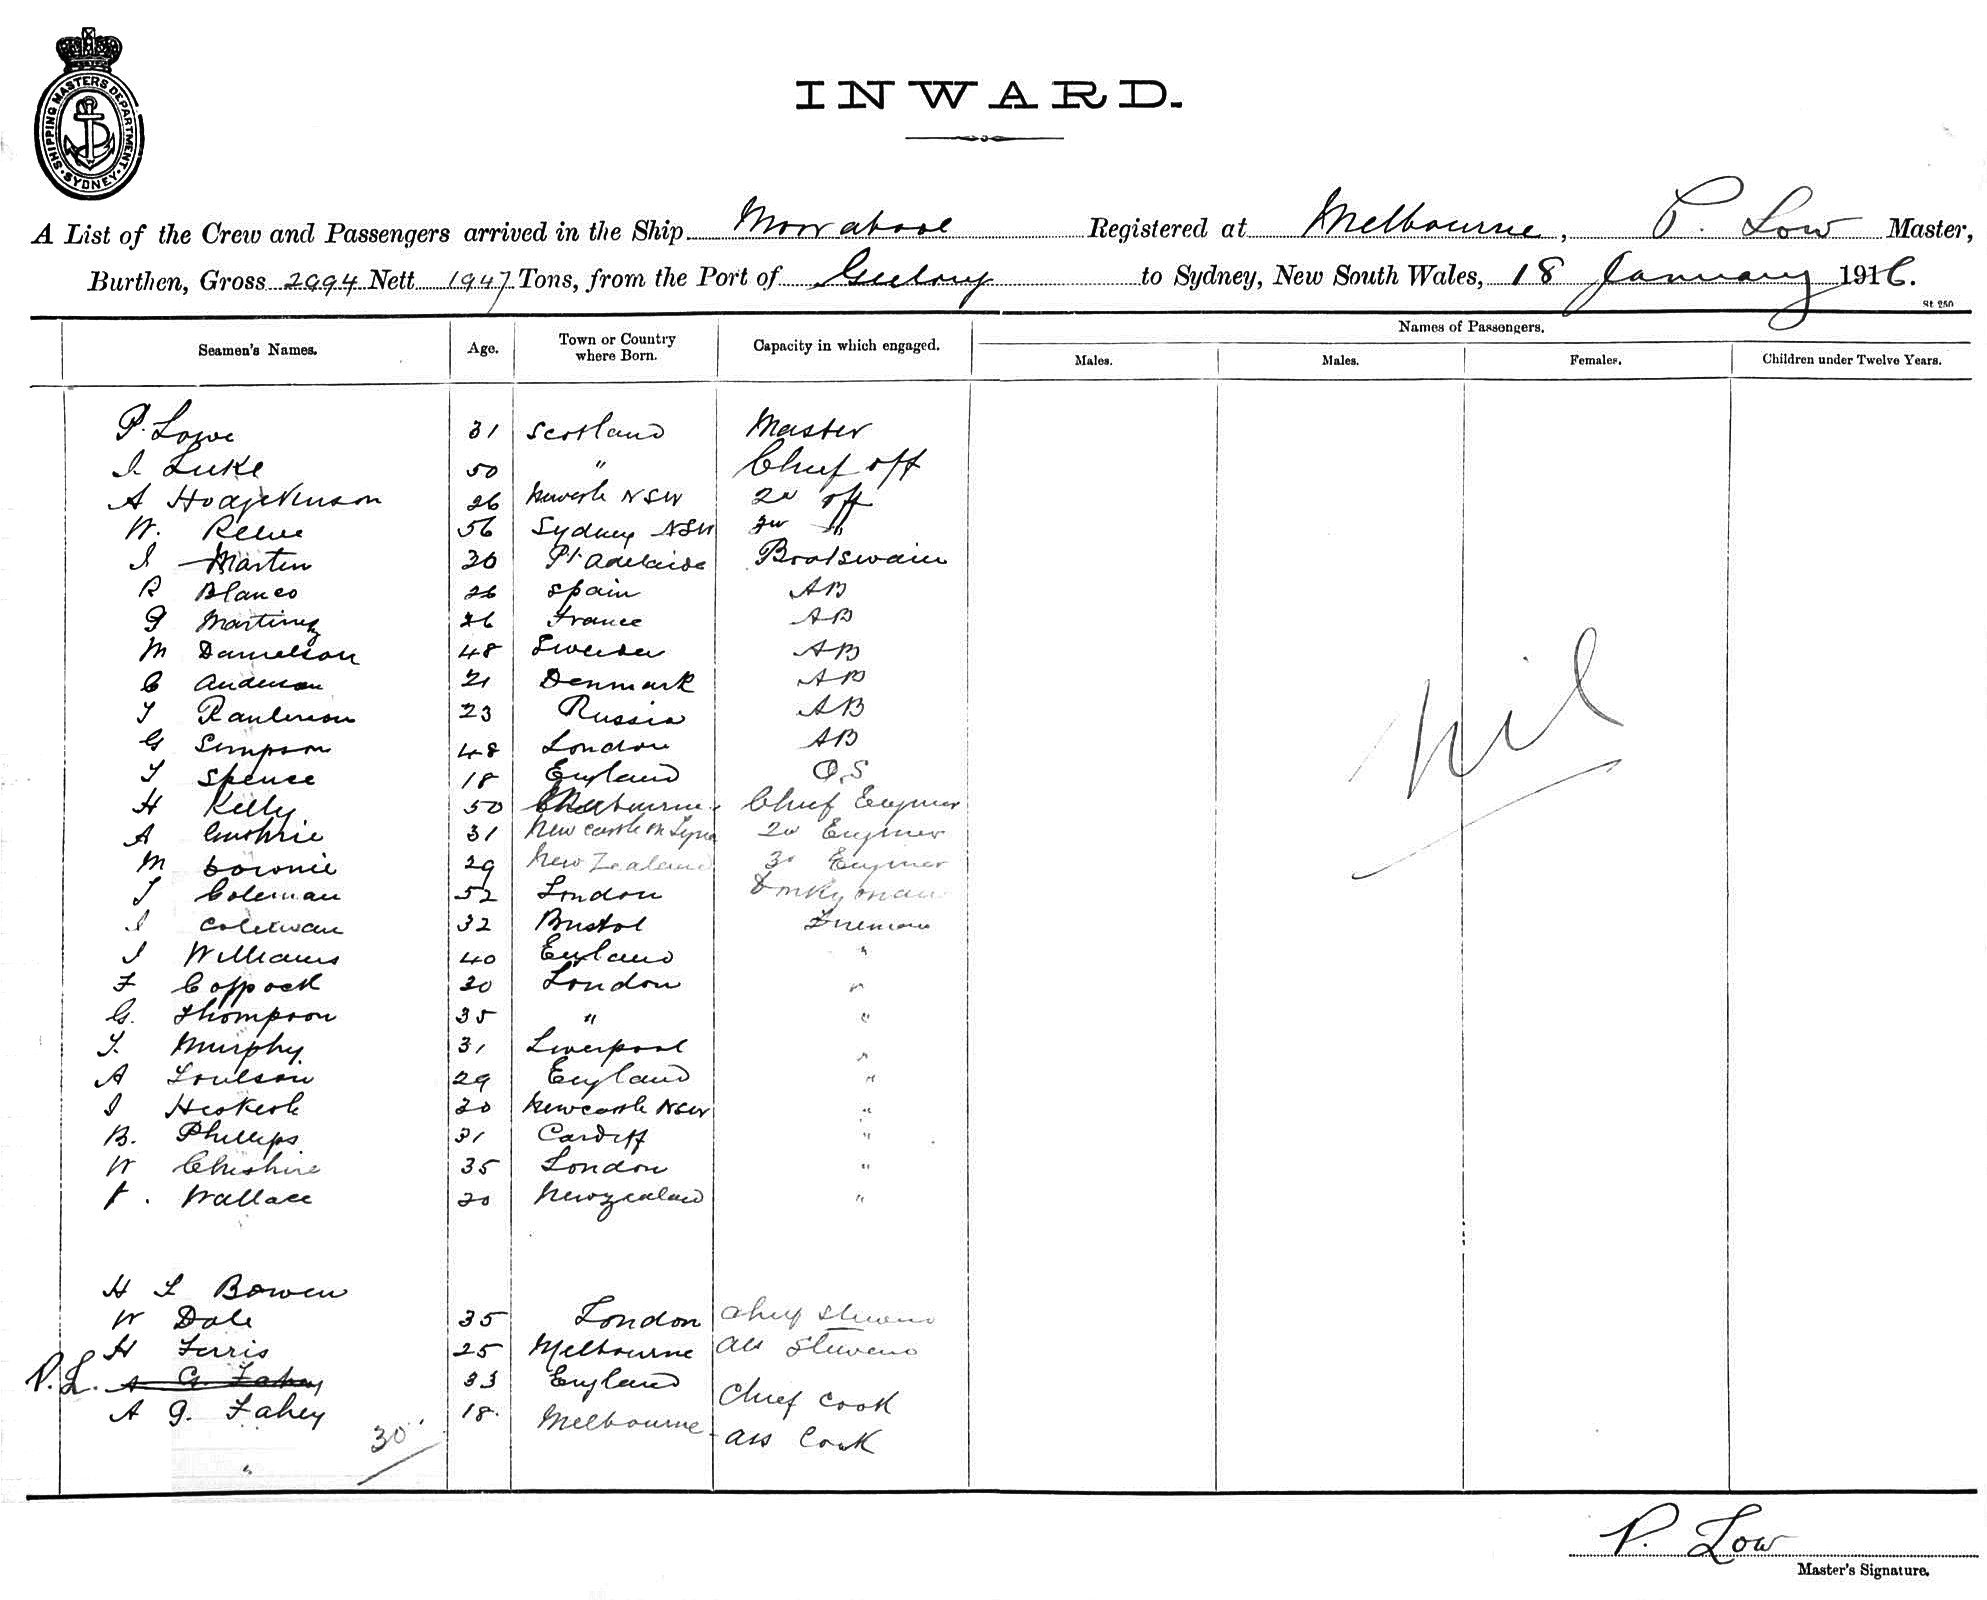 SHIPPING MASTERS DEPARTMENT · SYDNEY ·
INWARD.
A List of the Crew and Passengers arrived in the Ship Moorabool Registered at Melbourne, P. Low Master,
Burthen, Gross 2994 Nett 1947 Tons, from the Port of Geelong to Sydney, New South Wales, 18 January 1916.
St. 250
Seamen's Names. Age. Town or Country where Born. Capacity in which engaged. Names of Passengers.
Males. Males. Females. Children under Twelve Years.
P. Lowe 31 Scotland Master
J. Luke 50 " Chief off
A Hodgekinson 26 Newcstle NSW 2d off
W. Reeve 56 Sydney NSW 3d "
J Martin 30 Pt Adelaide Boatswain
R Blanco 26 Spain AB
Martinez 26 France AB
M Danielson 48 Sweden AB
C Anderson 21 Denmark AB
23 Russia AB
G Simpson 48 London AB
T Spence 18 England O.S
H Kelly 50 Melbourne Chief Enginer
A Guthrie 31 Newcastle on Tyne 2d Enginer
M Downie 29 New Zealand 3d Enginer
T Coleman 52 London Donkyman
J Coleman 32 Bristol Fireman
J Williams 40 England "
F Coppock 30 London "
G. Thompson 35 " "
T. Murphy 31 Liverpool "
A Toulson 29 England "
J 30 Newcastle NSW "
B. Phillips 31 Cardiff "
W Cheshire 35 London "
Wallace 30 New Zealand "
H T Bowen
W Dale 35 London Chief Steward
H Ferris 25 Melbourne Ass Steward
P. L. A G. Fahey 33 England Chief Cook
A G. Fahey 18. Melbourne Ass Cook
30
"
Nil
P. Low
Master's Signature.